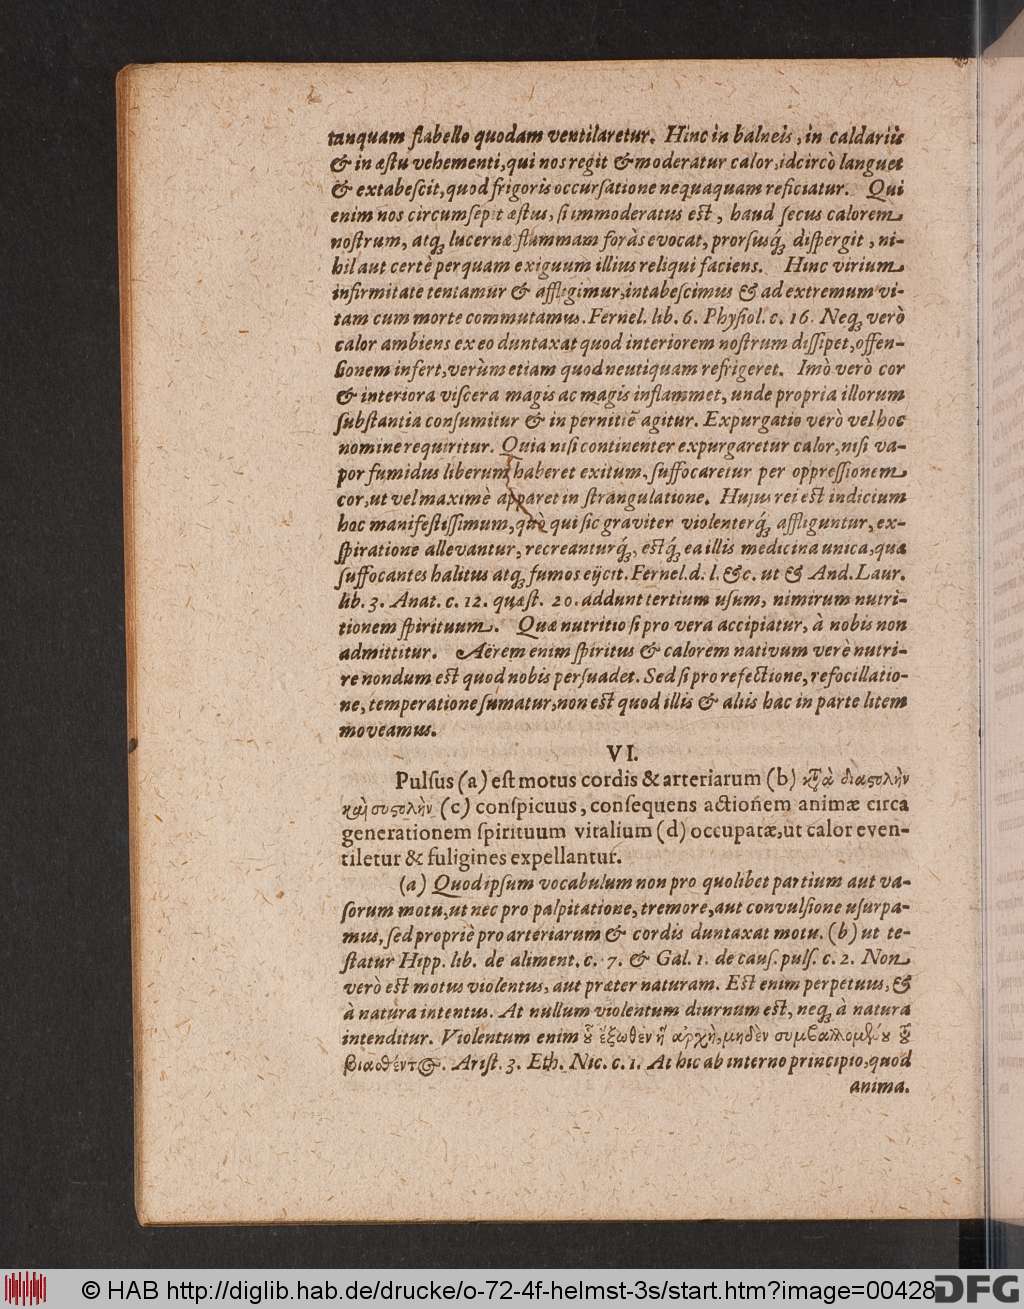 tanquam flabello quodam ventilaretur. Hinc in balneis, in caldariis
& in æstu vehementi, qui nos regit & moderatur calor, idcircò languet
& extabescit, quod frigoris occursatione nequaquam reficiatur. Qui
enim nos circumsepit æstus, si immoderatus est, haud secus calorem
nostrum, atq; lucernæ flammam foràs evocat, prorsusq́; dispergit, ni-
hil aut certè perquam exiguum illius reliqui faciens. Hinc virium
infirmitate tentamur & affligimur, intabescimus & ad extremum vi-
tam cum morte commutamus. Fernel. lib. 6. Physiol. c. 16. Neq; verò
calor ambiens ex eo duntaxat quod interiorem nostrum dissipet, offen-
sionem infert, verùm etiam quod neutiquam refrigeret. Imò verò cor
& interiora viscera magis ac magis inflammet, unde propria illorum
substantia consumitur & in pernitiē agitur. Expurgatio verò vel hoc
nomine requiritur. Quia nisi continenter expurgaretur calor, nisi va-
por fumidus liberum haberet exitum, suffocaretur per oppressionem
cor, ut vel maximè apparet in strangulatione. Hujus rei est indicium
hoc manifestissimum, quò qui sic graviter violenterq́; affliguntur, ex-
spiratione allevantur, recreanturq́;, estq́; ea illis medicina unica, quæ
suffocantes halitus atq; fumos eijcit. Fernel. d. l. &c. ut & And. Laur.
lib. 3. Anat. c. 12. quæst. 20. addunt tertium usum, nimirum nutri-
tionem spirituum. Quæ nutritio si pro vera accipiatur, à nobis non
admittitur. Aërem enim spiritus & calorem nativum verè nutri-
re nondum est quod nobis persuadet. Sed si pro refectione, refocillatio-
ne, temperatione sumatur, non est quod illis & aliis hac in parte litem
moveamus.
VI.
Pulsus (a) est motus cordis & arteriarum (b) κτ̃ὰ διαςολὴν
καὶ συςολὴν (c) conspicuus, consequens actionem animæ circa
generationem spirituum vitalium (d) occupatæ, ut calor even-
tiletur & fuligines expellantur.
(a) Quod ipsum vocabulum non pro quolibet partium aut va-
sorum motu, ut nec pro palpitatione, tremore, aut convulsione usurpa-
mus, sed propriè pro arteriarum & cordis duntaxat motu. (b) ut te-
statur Hipp. lib. de aliment. c. 7. & Gal. 1. de caus. puls. c. 2. Non
verò est motus violentus, aut præter naturam. Est enim perpetuus, &
à natura intentus. At nullum violentum diurnum est, neq; à natura
intenditur. Violentum enim οὗ ἔξωθεν ἡ ἀρχὴ, μηδὲν συμβαλλομένου τοῦ
βιασθέντος. Arist. 3. Eth. Nic. c. 1. At hic ab interno principio, quod
anima.
© HAB http://diglib.hab.de/drucke/o-72-4f-helmst-3s/start.htm?image=00428
DFG